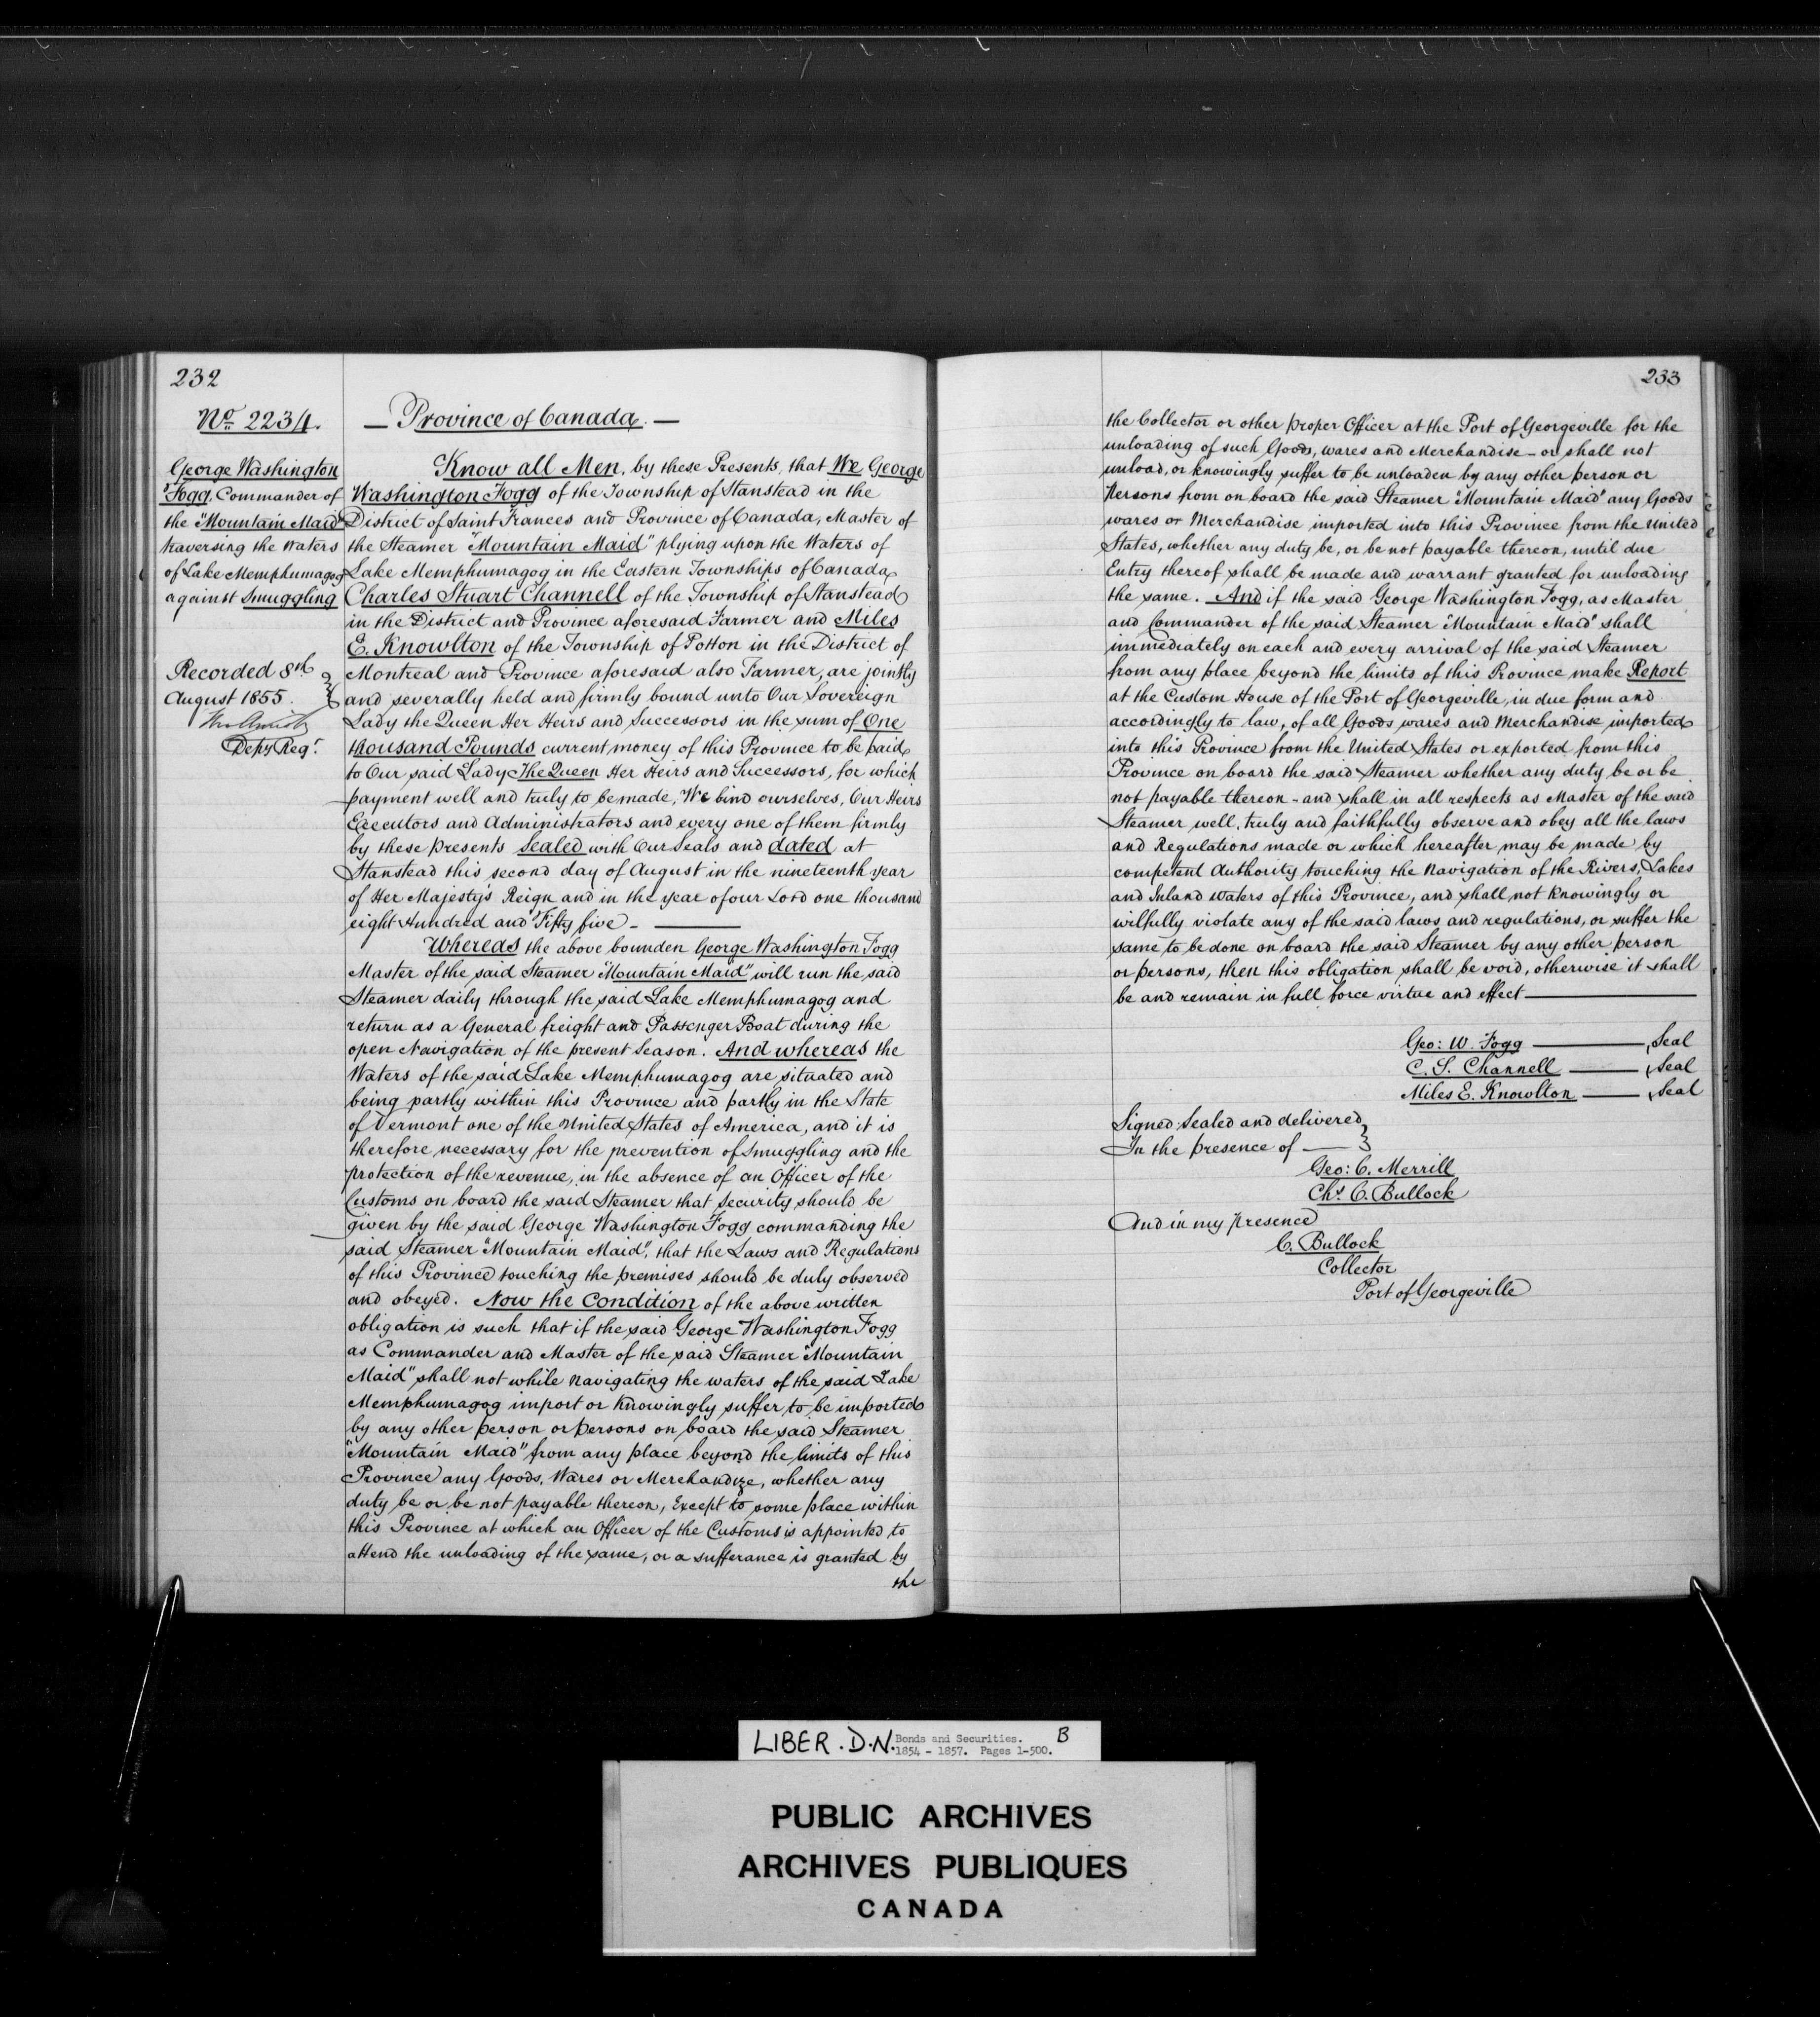 232
No. 2234.
George Washington
Fogg, Commander of
the "Mountain Maid"
traversing the Waters
of Lake Memphumagog
against Smuggling
Recorded 8th
August 1855.
Depy. Regr.
— Province of Canada. —
Know all Men, by these Presents, that We George
Washington Fogg of the Township of Stanstead in the
District of Saint Frances and Province of Canada, Master of
the Steamer "Mountain Maid" plying upon the Waters of
Lake Memphumagog in the Eastern Townships of Canada,
Charles Stuart Channell of the Township of Stanstead
in the District and Province aforesaid Farmer and Miles
E. Knowlton of the Township of Potton in the District of
Montreal and Province aforesaid also Farmer, are jointly
and severally held and firmly bound unto Our Sovereign
Lady the Queen Her Heirs and Successors in the sum of One
thousand Pounds current money of this Province to be paid
to Our said Lady The Queen Her Heirs and Successors, for which
payment well and truly to be made, We bind ourselves, Our Heirs
Executors and Administrators and every one of them firmly
by these presents Sealed with Our Seals and dated at
Stanstead this second day of August in the nineteenth year
of Her Majesty's Reign and in the year of our Lord one thousand
eight Hundred and Fifty five - ———
Whereas the above bounden George Washington Fogg
Master of the said Steamer "Mountain Maid" will run the said
Steamer daily through the said Lake Memphumagog and
return as a General freight and Passenger Boat during the
open Navigation of the present Season. And whereas the
Waters of the said Lake Memphumagog are situated and
being partly within this Province and partly in the State
of Vermont one of the United States of America, and it is
therefore necessary for the prevention of Smuggling and the
protection of the revenue, in the absence of an Officer of the
Customs on board the said Steamer that Security should be
given by the said George Washington Fogg commanding the
said Steamer "Mountain Maid", that the Laws and Regulations
of this Province touching the premises should be duly observed
and obeyed. Now the Condition of the above written
obligation is such that if the said George Washington Fogg
as Commander and Master of the said Steamer "Mountain
Maid" shall not while Navigating the waters of the said Lake
Memphumagog import or knowingly suffer to be imported
by any other person or persons on board the said Steamer
"Mountain Maid" from any place beyond the limits of this
Province any Goods, Wares or Merchandize, whether any
duty be or be not payable thereon, Except to some place within
this Province at which an Officer of the Customs is appointed to
attend the unloading of the same, or a sufferance is granted by
the
233
the Collector or other proper Officer at the Port of Georgeville for the
unloading of such Goods, wares and Merchandise - or shall not
unload, or knowingly suffer to be unloaden by any other person or
Persons from on board the said Steamer "Mountain Maid" any Goods
wares or Merchandise imported into this Province from the United
States, whether any duty be, or be not payable thereon, until due
Entry thereof shall be made and warrant granted for unloading
the same. And if the said George Washington Fogg, as Master
and Commander of the said Steamer "Mountain Maid" shall
immediately on each and every arrival of the said Steamer
from any place beyond the limits of this Province make Report
at the Custom House of the Port of Georgeville, in due form and
accordingly to law, of all Goods wares and Merchandise imported
into this Province from the United States or exported from this
Province on board the said Steamer whether any duty be or be
not payable thereon - and shall in all respects as Master of the said
Steamer well, truly and faithfully observe and obey all the laws
and Regulations made or which hereafter may be made by
competent Authority touching the Navigation of the Rivers, Lakes
and Inland waters of this Province, and shall not knowingly or
wilfully violate any of the said laws and regulations, or suffer the
same to be done on board the said Steamer by any other person
or persons, then this obligation shall be void, otherwise it shall
be and remain in full force virtue and effect ———
Geo: W. Fogg ——— Seal
C. S. Channell ——— Seal
Miles E. Knowlton ——— Seal
Signed Sealed and delivered
In the presence of —
Geo: C. Merrill
Chs. C. Bullock
And in my presence
C. Bullock
Collector
Port of Georgeville
LIBER. D.N. Bonds and Securities. B
1854 - 1857. Pages 1-500.
PUBLIC ARCHIVES
ARCHIVES PUBLIQUES
CANADA